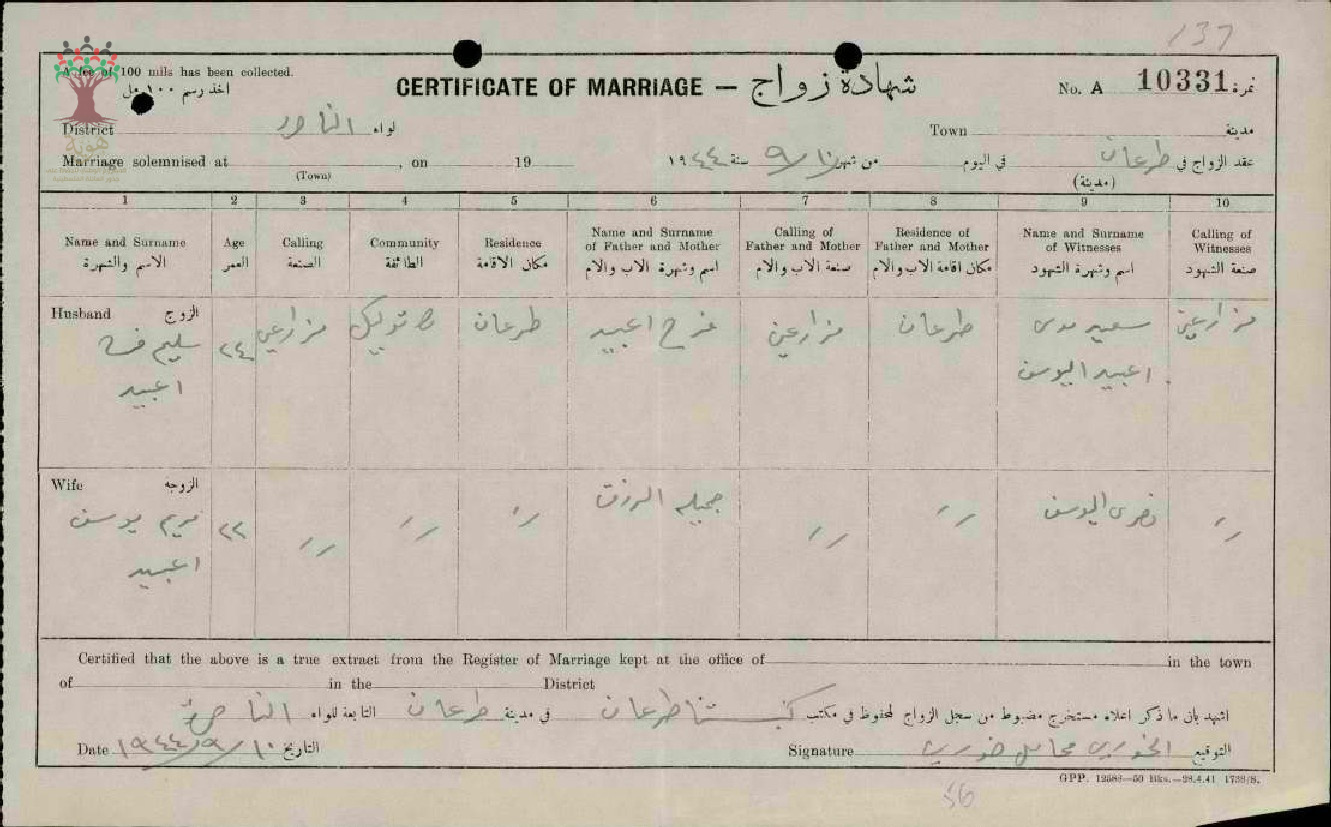 137
A fee of 100 mils has been collected.
اخذ رسم ١٠٠ مل
CERTIFICATE OF MARRIAGE — شهادة زواج
No. A 10331 نمرة:
District لواء
Town مدينة
هوية
Marriage solemnised at , on 19
(Town)
عقد الزواج في طرعان في اليوم من شهر ٩ سنة ١٩٤٤
(مدينة)
1 2 3 4 5 6 7 8 9 10
Name and Surname
الاسم والشهرة
Age
العمر
Calling
الصنعة
Community
الطائفة
Residence
مكان الاقامة
Name and Surname
of Father and Mother
اسم وشهرة الاب والام
Calling of
Father and Mother
صنعة الاب والام
Residence of
Father and Mother
مكان اقامة الاب والام
Name and Surname
of Witnesses
اسم وشهرة الشهود
Calling of
Witnesses
صنعة الشهود
Husband الزوج
سليم
اعبيد
٢٤
طرعان
فرح اعبيد
طرعان
سعيد موسى
اعبيد اليوسف
Wife الزوجه
مريم يوسف
اعبيد
٢٢
جميله الرزق
اليوسف
Certified that the above is a true extract from the Register of Marriage kept at the office of in the town
of in the District
اشهد بان ما ذكر اعلاه مستخرج مضبوط من سجل الزواج المحفوظ في مكتب طرعان في مدينة طرعان التابعة للواء الناصرة
Date ١٩٤٤/٩/١٠ التاريخ
Signature الخوري خوري التوقيع
GPP. 12583—50 Bks.—28.4.41 1738/S.
56